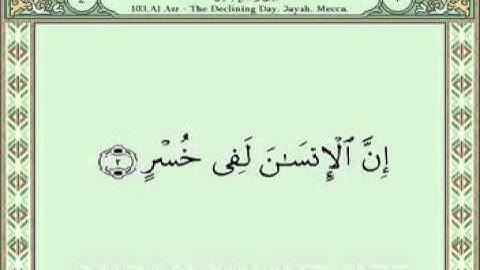 103.Al Asr - The Declining Day. 3ayah. Mecca.
إِنَّ ٱلْإِنسَـٰنَ لَفِى خُسْرٍ ٢